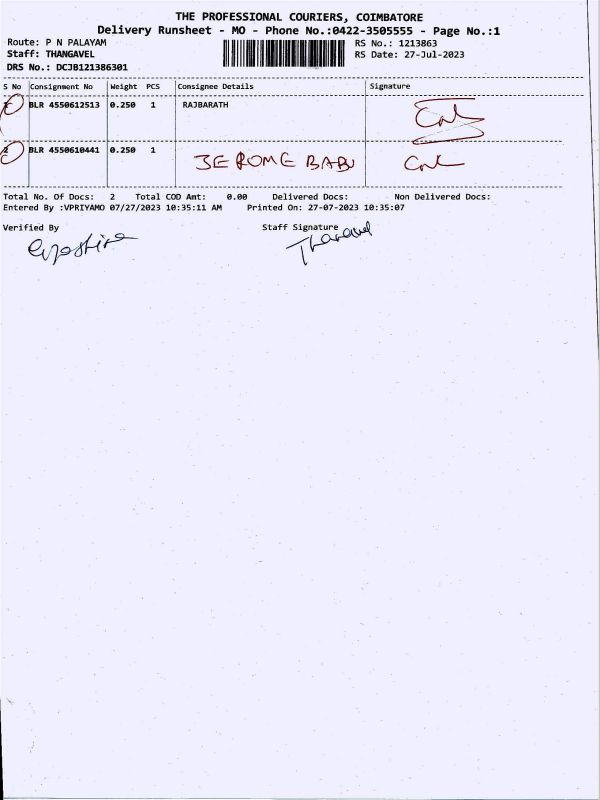 THE PROFESSIONAL COURIERS, COIMBATORE
Delivery Runsheet - MO - Phone No.:0422-3505555 - Page No.:1
Route: P N PALAYAM
Staff: THANGAVEL
DRS No.: DCJB121386301
RS No.: 1213863
RS Date: 27-Jul-2023
S No Consignment No Weight PCS Consignee Details Signature
1 BLR 4550612513 0.250 1 RAJBARATH
2 BLR 4550610441 0.250 1 JEROME BABU
Total No. Of Docs: 2 Total COD Amt: 0.00 Delivered Docs: Non Delivered Docs:
Entered By :VPRIYAMO 07/27/2023 10:35:11 AM Printed On: 27-07-2023 10:35:07
Verified By Staff Signature